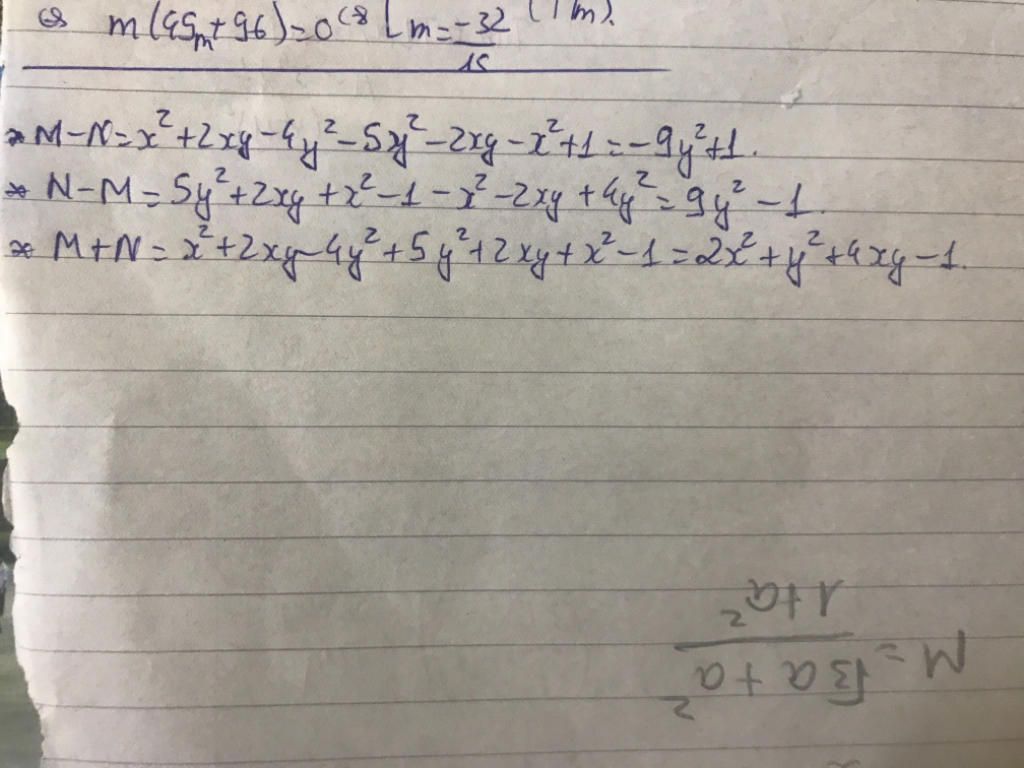 ⇔ m(45m+96)=0 ⇔ [ m=-32/15 (Tm).
* M-N=x²+2xy-4y²-5y²-2xy-x²+1=-9y²+1.
* N-M=5y²+2xy+x²-1-x²-2xy+4y²=9y²-1.
* M+N=x²+2xy-4y²+5y²+2xy+x²-1=2x²+y²+4xy-1.
M=(√3a+a²)/(1+a²)